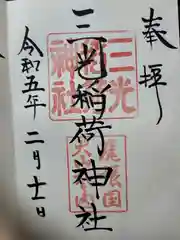 奉拝
三光稲荷神社
三光
稲荷
神社
尾張国
犬山
令和五年二月十一日